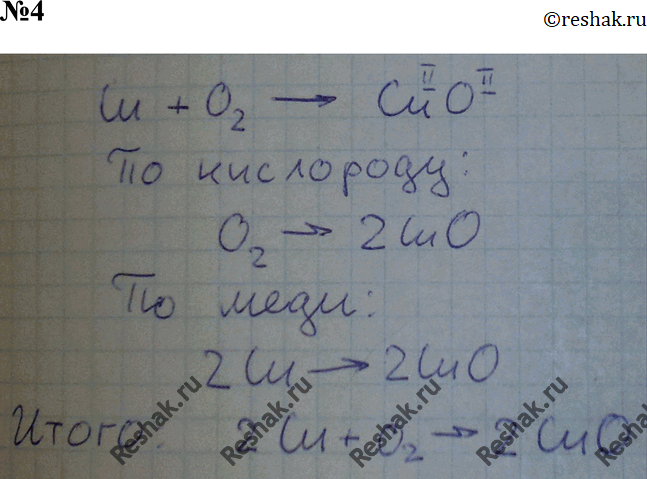 №4
©reshak.ru
Cu + O₂ → Cuᴵᴵ Oᴵᴵ
По кислороду:
O₂ → 2CuO
По меди:
2Cu → 2CuO
Итого: 2Cu + O₂ → 2CuO
Reshak.ru Reshak.ru Reshak.ru Reshak.ru